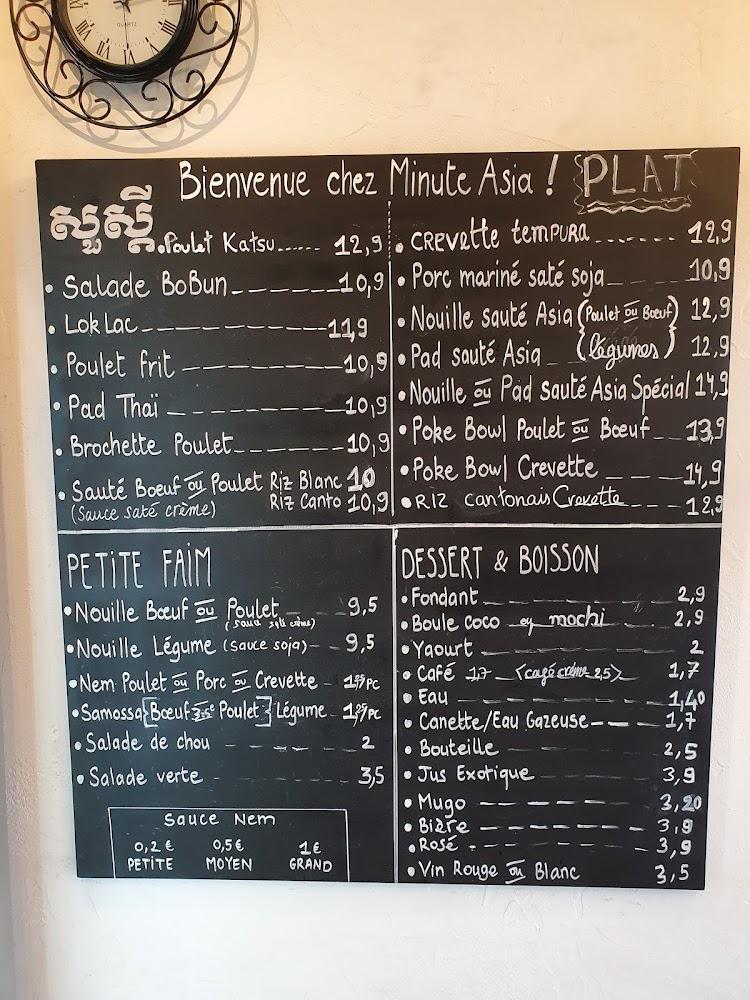 QUARTZ
Bienvenue chez Minute Asia !
PLAT
សួស្តី
• Poulet Katsu...... 12,9
• Salade BoBun ------- 10,9
• Lok Lac ------- 11,9
• Poulet frit ------- 10,9
• Pad Thaï ------- 10,9
• Brochette Poulet ------- 10,9
• Sauté Boeuf ou Poulet Riz Blanc 10
(Sauce saté crème) Riz Canto 10,9
• CREVette temPURA ------- 12,9
• Porc mariné saté soja ------- 10,9
• Nouille sauté Asia (Poulet ou Bœuf) 12,9
• Pad sauté Asia (légumes) 12,9
• Nouille ou Pad sauté Asia Spécial 14,9
• Poke Bowl Poulet ou Bœuf --- 13,9
• Poke Bowl Crevette ------- 14,9
• RIZ cantonais Crevette ------- 12,9
PETITE FAIM
• Nouille Bœuf ou Poulet ------- 9,5
(sauce saté crème)
• Nouille Légume (sauce soja) -- 9,5
• Nem Poulet ou Porc ou Crevette --- PC
• Samossa [Bœuf Poulet] Légume --- PC
• Salade de chou ------- 2
• Salade verte ------- 3,5
Sauce Nem
0,2 € 0,5 € 1 €
PETITE MOYEN GRAND
DESSERT & BOISSON
• Fondant ------- 2,9
• Boule coco mochi ------- 2,9
• Yaourt ------- 2
• Café 1,7 (café crème 2,5) 1,7
• Eau ------- 1,40
• Canette/Eau Gazeuse --- 1,7
• Bouteille ------- 2,5
• Jus Exotique ------- 3,9
• Mugo ------- 3,20
• Bière ------- 3,9
• Rosé ------- 3,9
• Vin Rouge ou Blanc 3,5